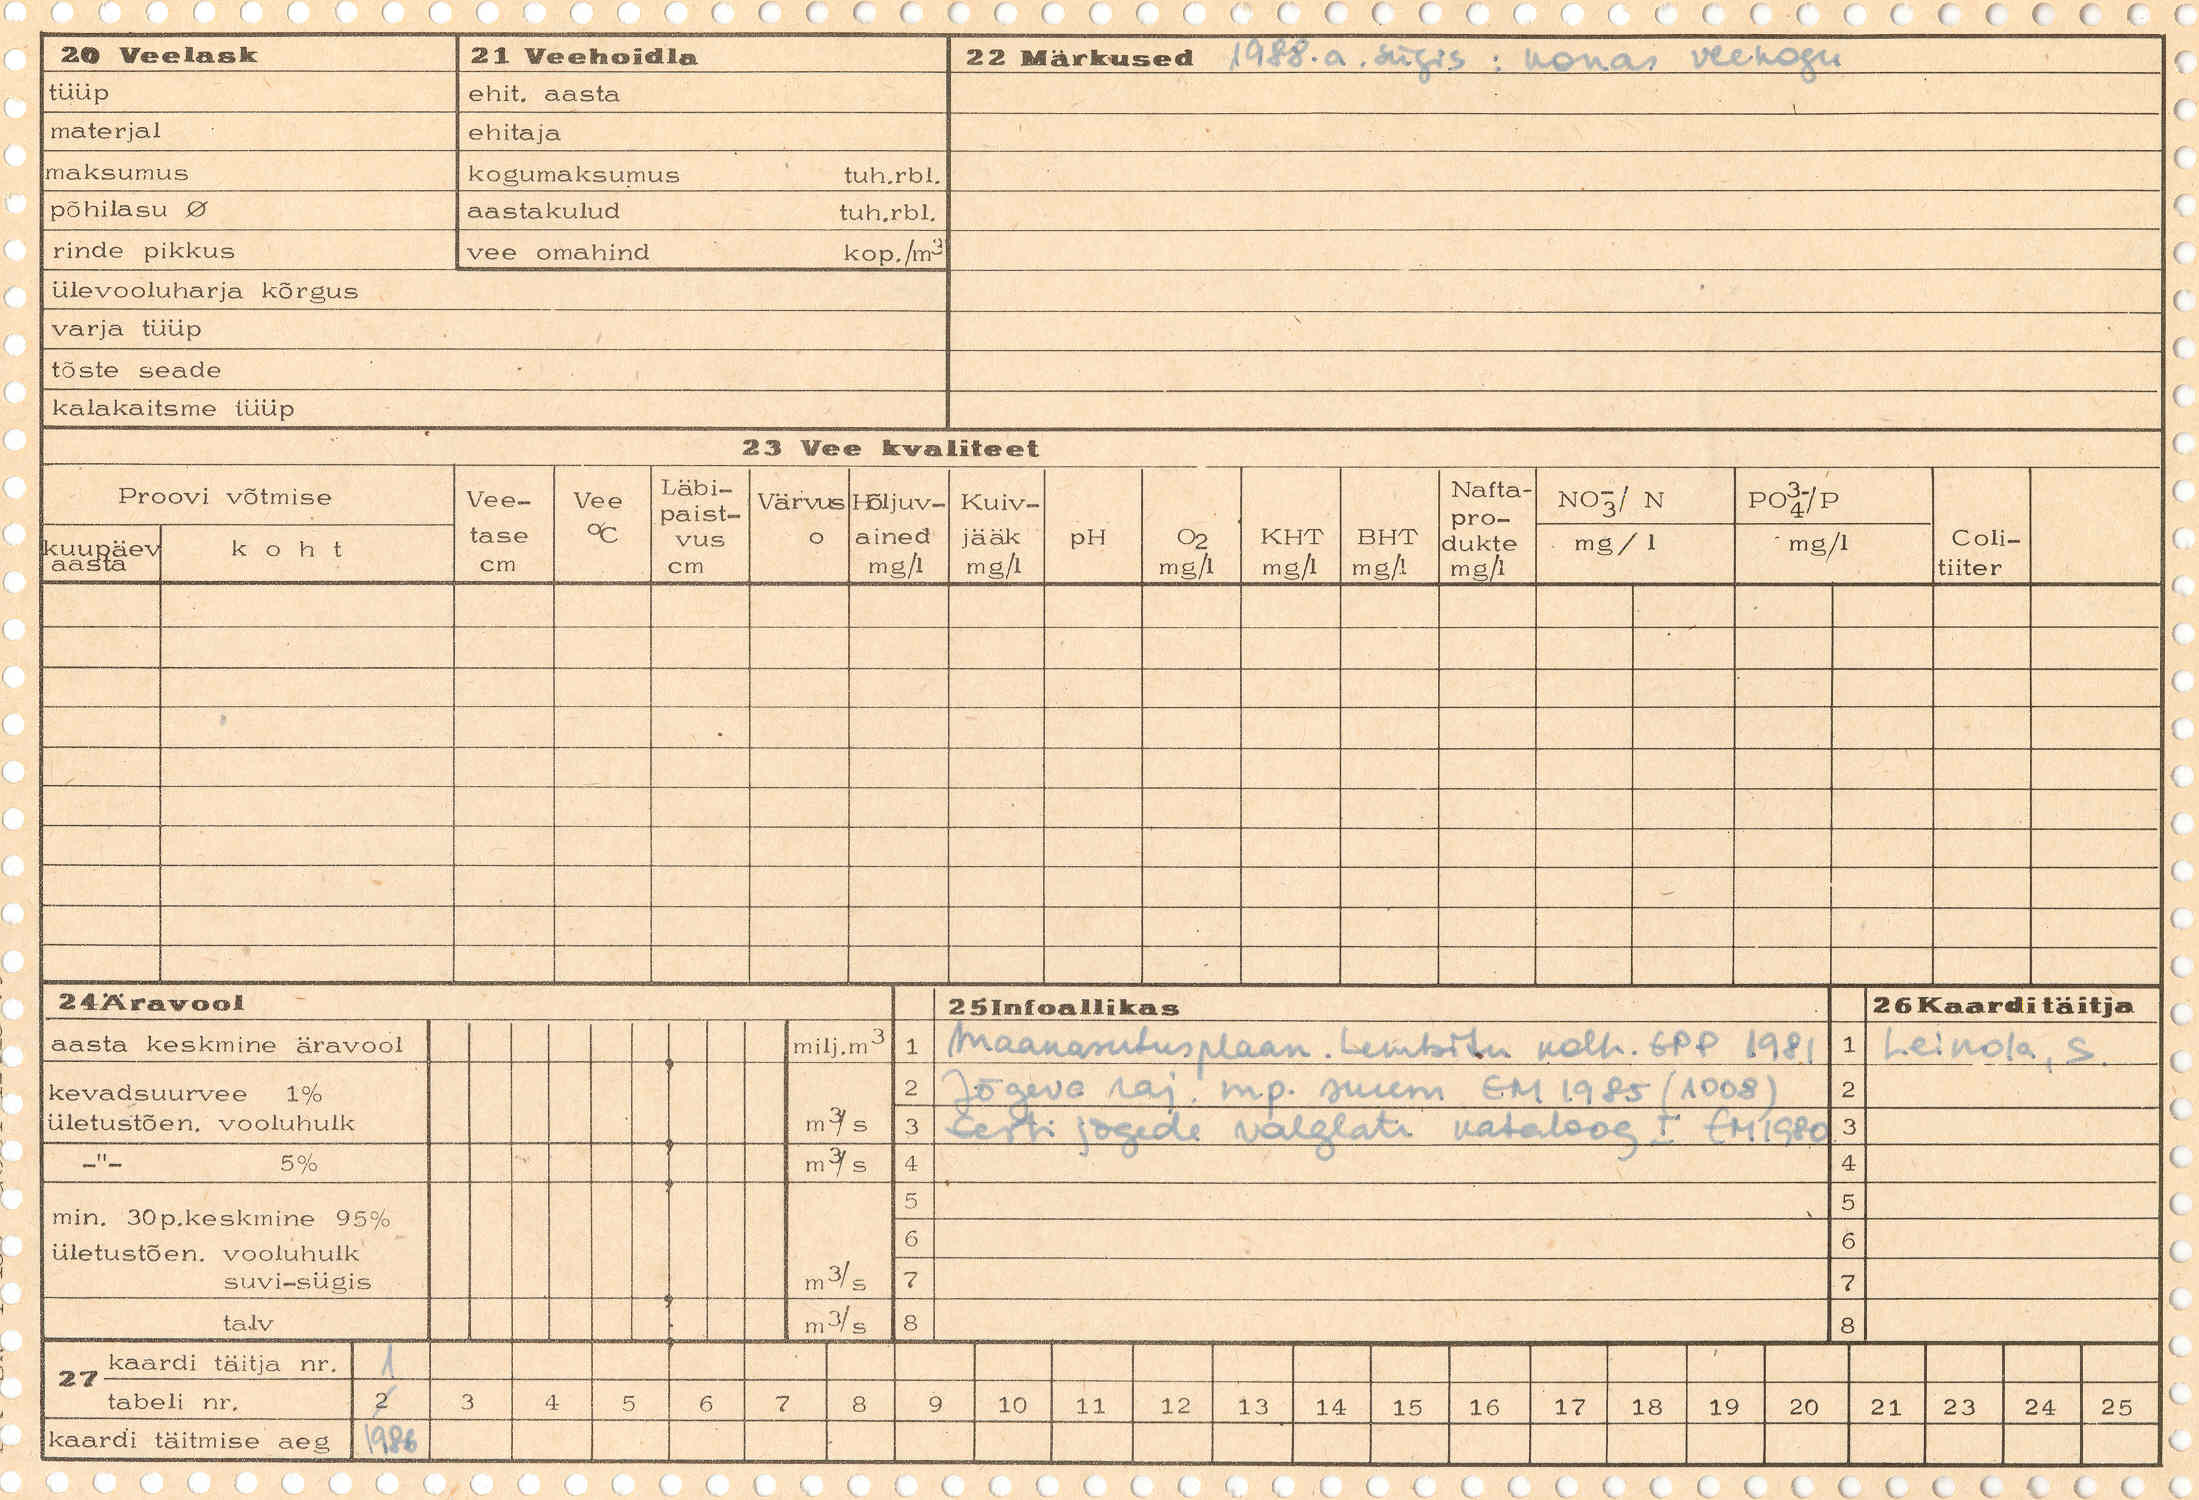 20 Veelask
tüüp
materjal
maksumus
põhilasu Ø
rinde pikkus
ülevooluharja kõrgus
varja tüüp
tõste seade
kalakaitsme tüüp
21 Veehoidla
ehit. aasta
ehitaja
kogumaksumus tuh.rbl.
aastakulud tuh.rbl.
vee omahind kop./m³
22 Märkused 1988.a. sügis : korras veekogu
23 Vee kvaliteet
Proovi võtmise
kuupäev aasta
koht
Vee-
tase
cm
Vee
°C
Läbi-
paist-
vus
cm
Värvus
o
Hõljuv-
ained
mg/l
Kuiv-
jääk
mg/l
pH
O2
mg/l
KHT
mg/l
BHT
mg/l
Nafta-
pro-
dukte
mg/l
NO₃⁻/ N
mg/l
PO₄³⁻/P
mg/l
Coli-
tiiter
24 Äravool
aasta keskmine äravool milj.m³
kevadsuurvee 1%
ületustõen. vooluhulk m³/s
-"- 5% m³/s
min. 30p.keskmine 95%
ületustõen. vooluhulk
suvi-sügis m³/s
talv m³/s
25 Infoallikas
1 Maakasutusplaan. Lembitu kolh. EPP 1981
2 Jõgeva raj. mp. skeem EM 1985 (1008)
3 Eesti jõgede valglate kataloog I EM 1980
4
5
6
7
8
26 Kaardi täitja
1 Leinola, S.
2
3
4
5
6
7
8
27 kaardi täitja nr. 1
tabeli nr. 2 3 4 5 6 7 8 9 10 11 12 13 14 15 16 17 18 19 20 21 23 24 25
kaardi täitmise aeg 1986